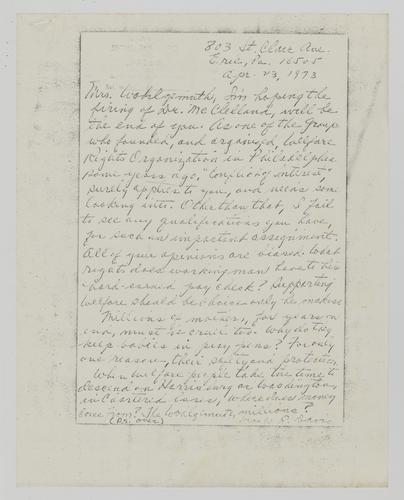 803 St. Clair Ave.
Erie, Pa. 16505
Apr. 23, 1973
Mrs. Wohlgemuth, I'm hoping the
firing of Dr. McClelland, will be
the end of you. As one of the Group
who founded, and organized, Welfare
Rights Organization in Philadelphia
some years ago, "Conflict of interest,"
surely applies to you, and needs some
looking into. Other than that, I fail
to see any qualifications you have,
for such an important assignment.
All of your opinions are biased. What
rights does working man have to his
hard-earned pay check? Supporting
welfare should be choice only he makes.
Millions of mothers, for years on
end, must be cruel too. Why do they
keep babies in play pens? For only
one reason, their safety and protection.
When welfare people take the time to
descend on Harrisburg or Washington,
in Chartered buses, where does money
come from? The Wohlgemuth millions?
(P.S. over) R. Davis